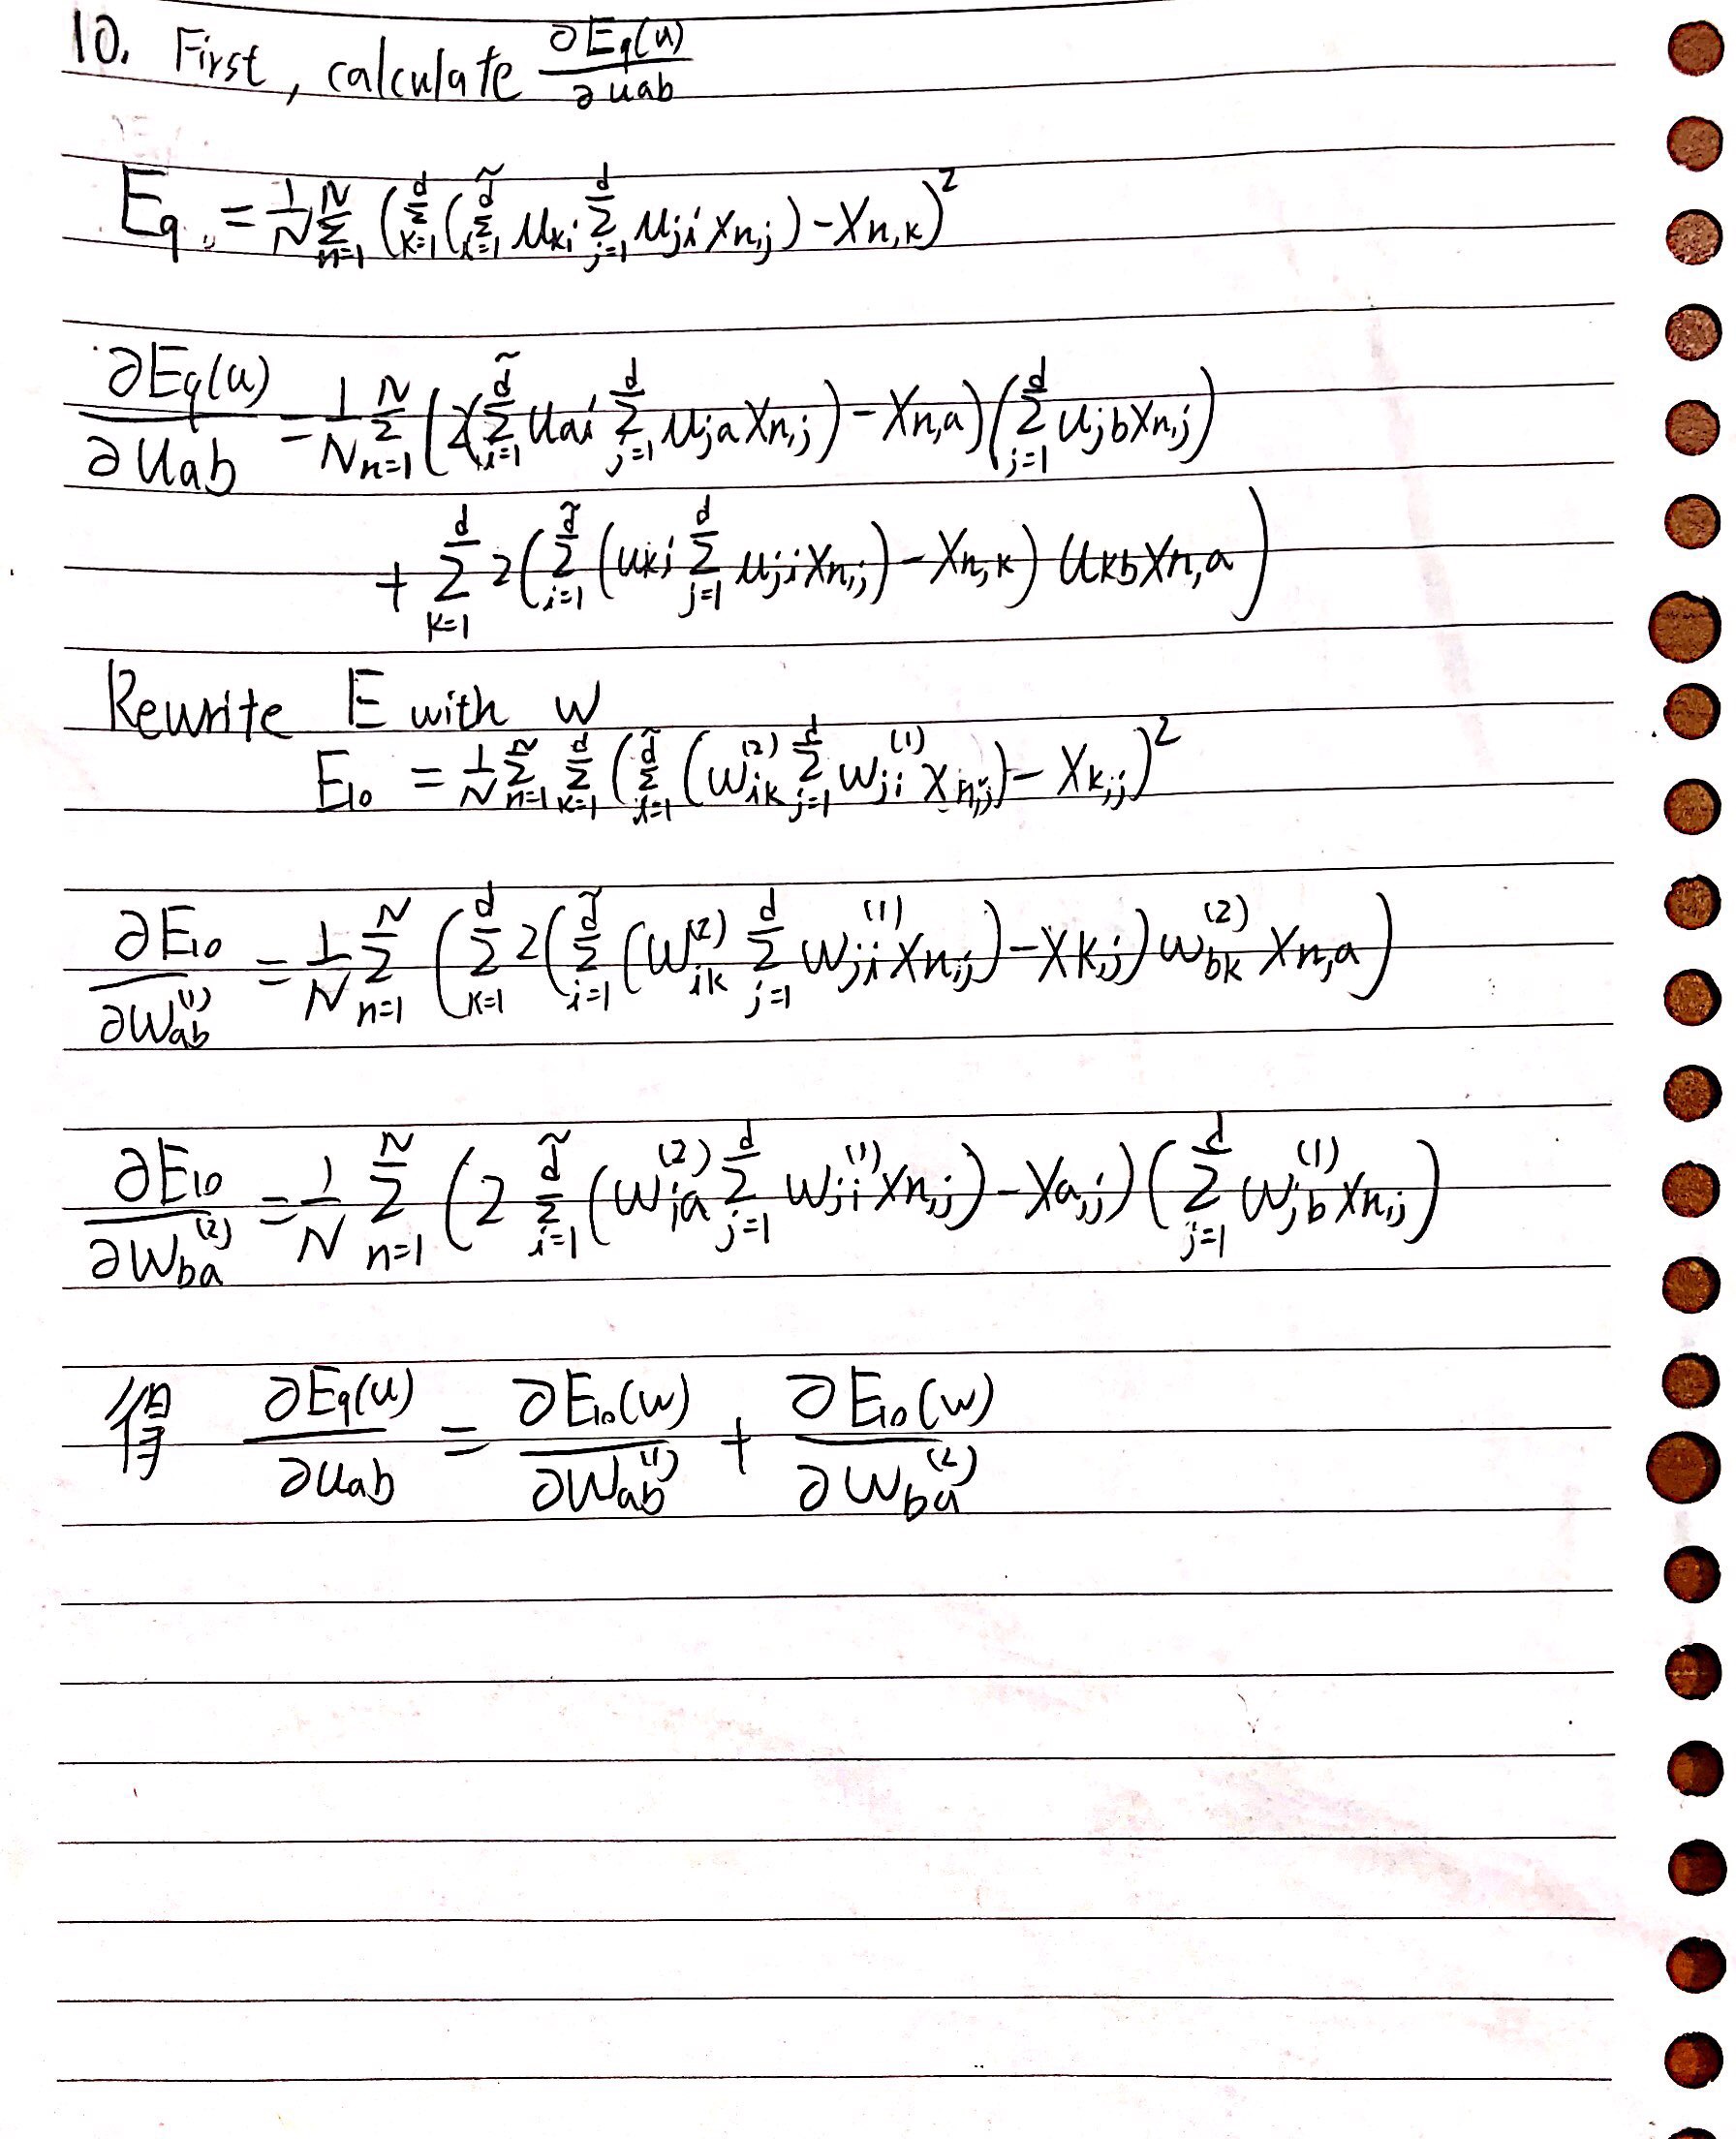 10. First, calculate ∂E₉(u)/∂uab
E₉ = 1/N Σ_{n=1}^{N} (Σ_{k=1}^{d} (Σ_{i=1}^{d̃} u_{ki} Σ_{j=1}^{d} u_{ji} x_{n,j}) - x_{n,k})²
∂E₉(u)/∂u_{ab} = 1/N Σ_{n=1}^{N} (2(Σ_{i=1}^{d̃} u_{ai} Σ_{j=1}^{d} u_{ja} x_{n,j}) - x_{n,a}) (Σ_{j=1}^{d} u_{jb} x_{n,j})
+ Σ_{k=1}^{d} 2(Σ_{i=1}^{d̃} (u_{ki} Σ_{j=1}^{d} u_{ji} x_{n,j}) - x_{n,k}) u_{kb} x_{n,a})
Rewrite E with w
E₁₀ = 1/N Σ_{n=1}^{N} Σ_{k=1}^{d} (Σ_{i=1}^{d̃} (w_{ik}^{(2)} Σ_{j=1}^{d} w_{ji}^{(1)} x_{n,j}) - x_{k,j})²
∂E₁₀/∂w_{ab}^{(1)} = 1/N Σ_{n=1}^{N} (Σ_{k=1}^{d} 2(Σ_{i=1}^{d̃} (w_{ik}^{(2)} Σ_{j=1}^{d} w_{ji}^{(1)} x_{n,j}) - x_{k,j}) w_{bk}^{(2)} x_{n,a})
∂E₁₀/∂w_{ba}^{(2)} = 1/N Σ_{n=1}^{N} (2 Σ_{i=1}^{d̃} (w_{ia}^{(2)} Σ_{j=1}^{d} w_{ji}^{(1)} x_{n,j}) - x_{a,j}) (Σ_{j=1}^{d} w_{jb}^{(1)} x_{n,j})
得 ∂E₉(u)/∂u_{ab} = ∂E₁₀(w)/∂w_{ab}^{(1)} + ∂E₁₀(w)/∂w_{ba}^{(2)}